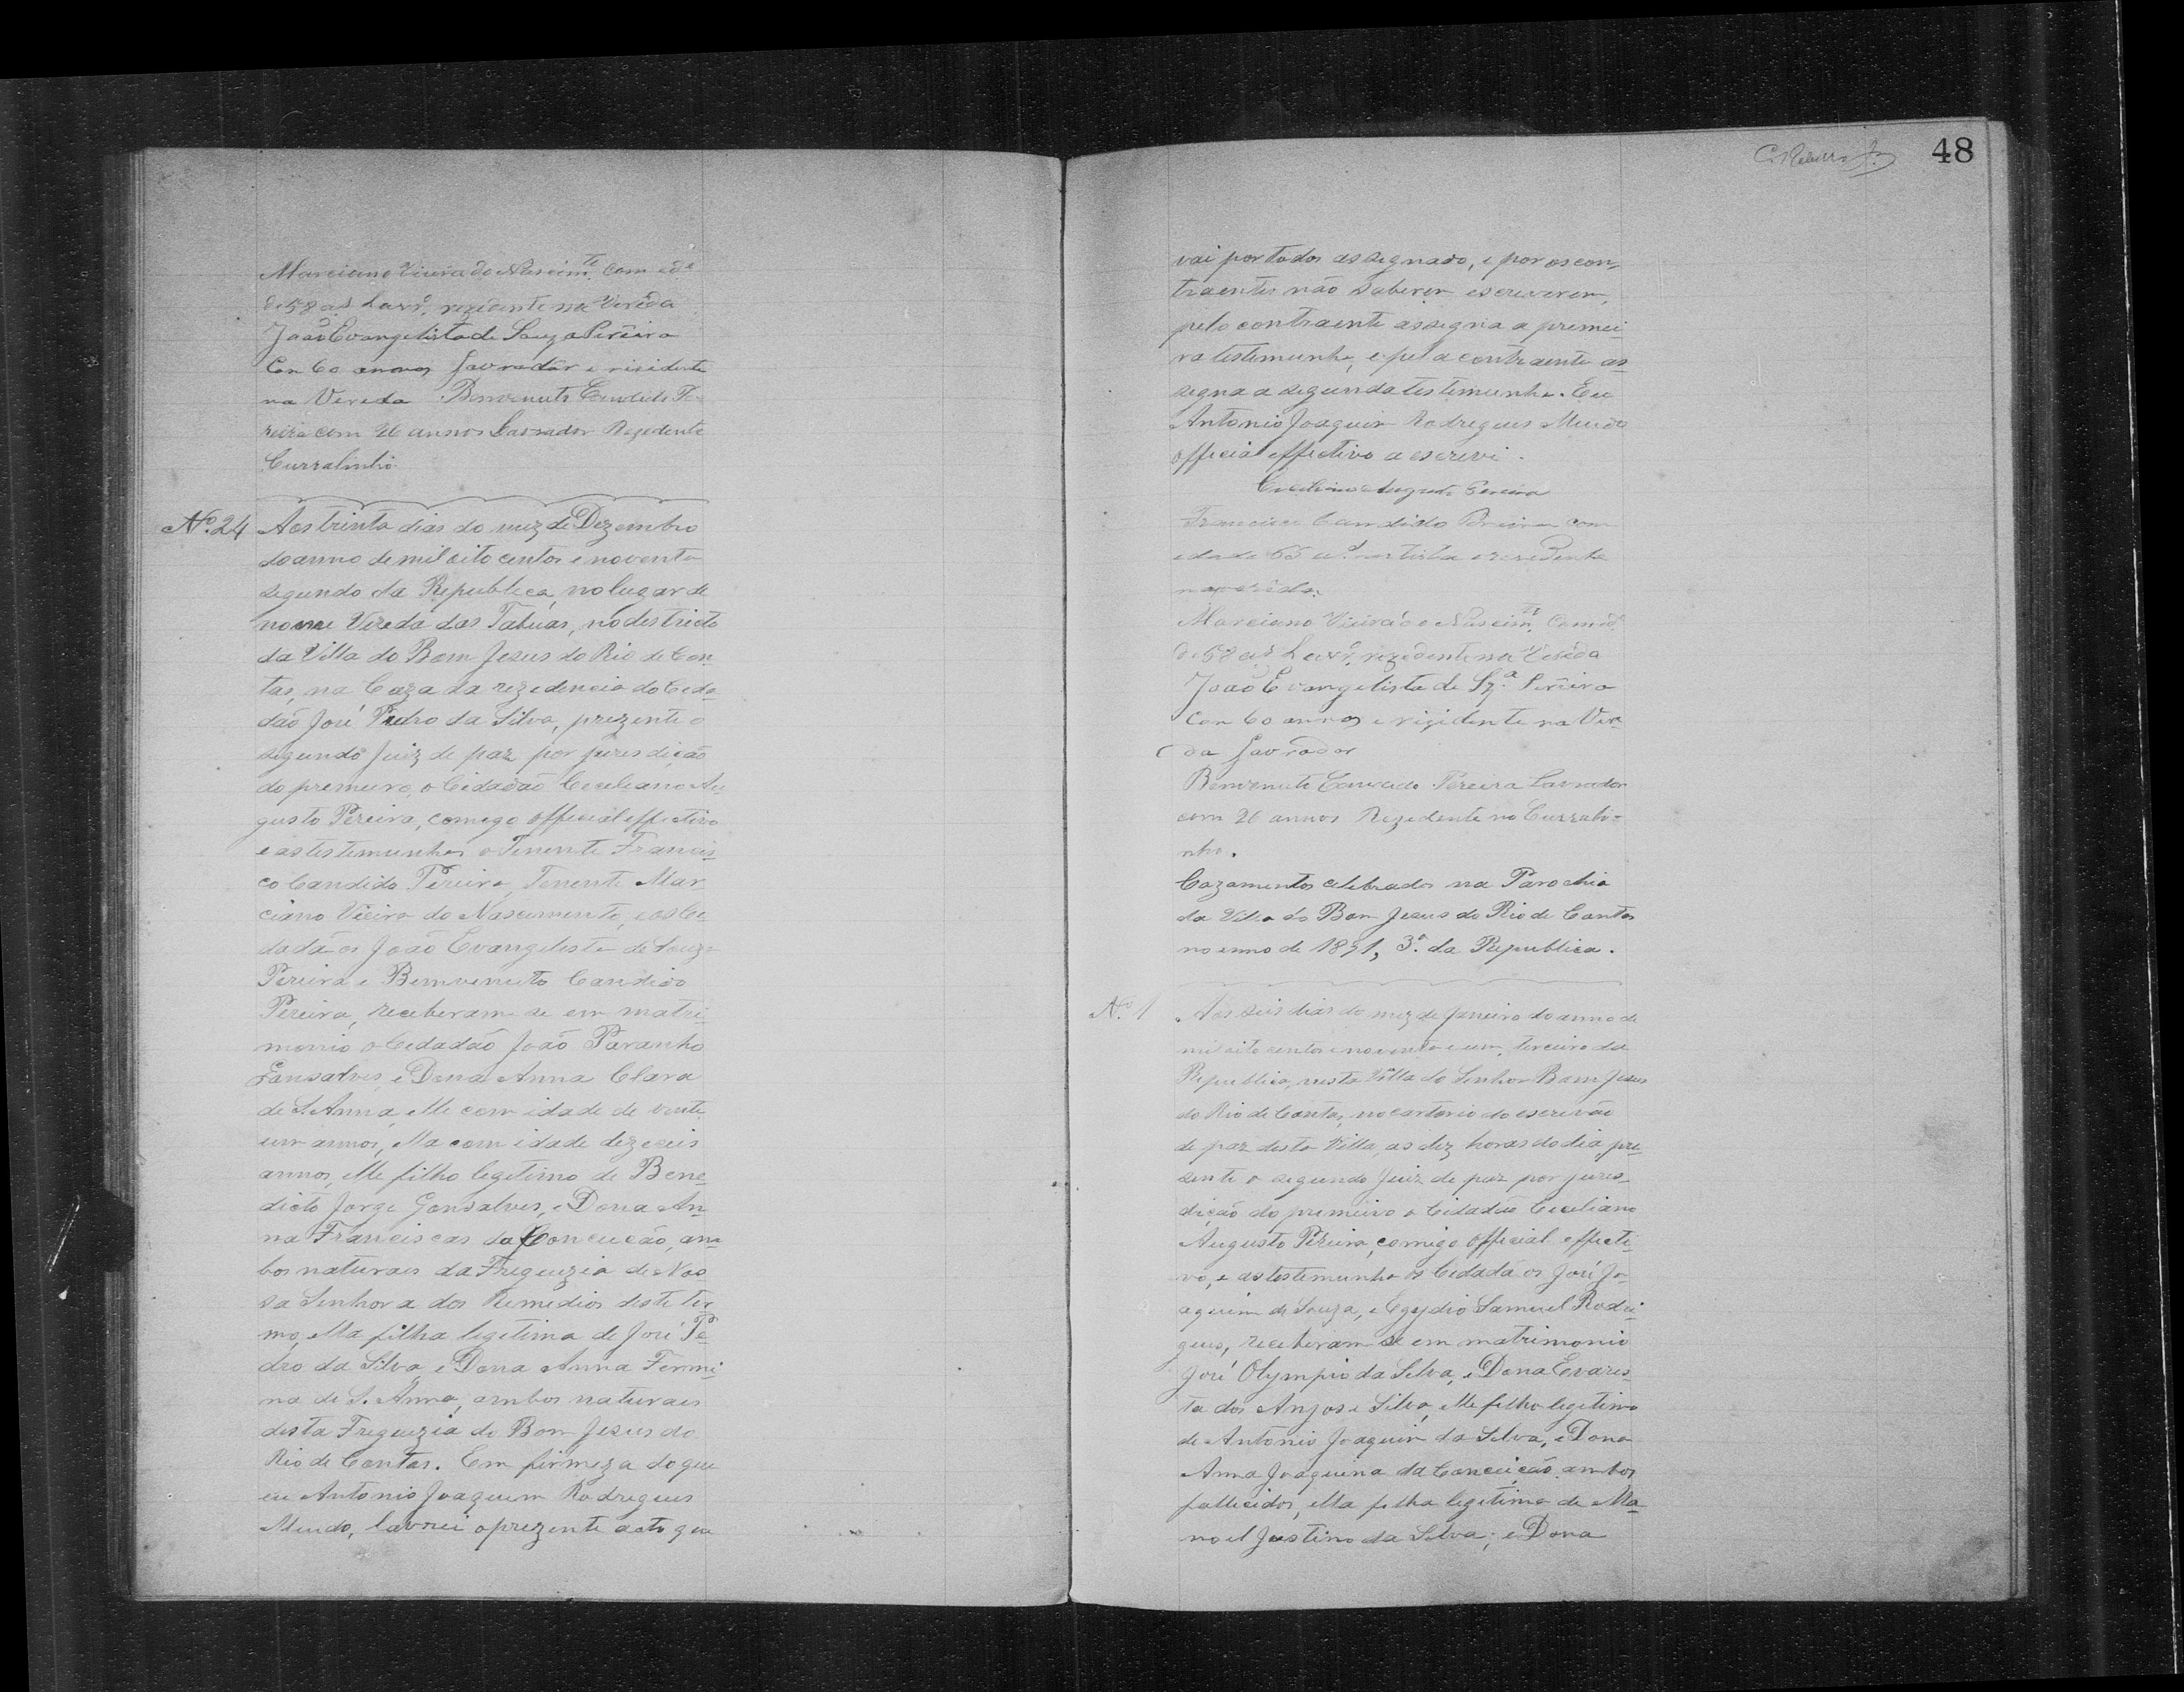 Marciano Vieira do Nascim.to com ede
de 58 a.s Lavr.or rezidente na Verêda
João Evangelista de Souza Perêira
Con 60 annos lavradôr e risidente
na Vereda Benvenuto Candido Pe
reira com 26 annos Lavrador Rezedente
Curralinho.
N.o 24 Aos trinta dias do mez de Dezembro
do anno de mil oito centos e noventa
segundo da Republica, no lugar de
nome Vereda das Tabúas, no destricto
da Villa do Bom Jesus do Rio de Con_
tas, na Caza da rezedencia do Ceda
dão José Pedro da Silva, prezente o
segundo Juiz de paz por juresdição
do premeiro, o Cidadão Ceceliano Au_
gusto Pereira, comego official effectivo
e as testemunhas o Tenente Francis_
co Candido Pereira, Tenente Mar
ciano Vieira do Nascimento, e os Ce
dadãos João Evangelista de Souza
Pereira e Bemvenuto Candido
Pereira, receberam-se em matri_
monio o Cedadão João Paranho
Gonsalves, e Dona Anna Clara
de S. Anna, elle com idade de vinte
um annos, ella com idade dezeceis
annos, elle filho legitimo de Bene_
dicto Jorge Gonsalves, e Dona An_
na Franciscas da Conceicão, am_
bos naturaes da Freguezia de Nos_
sa Senhora dos Remedios deste ter_
mo, ella filha legitima de José Pe_
dro da Silva, e Dona Anna Fermi_
na de S. Anna, ambos naturaes
desta Freguezia do Bom Jesus do
Rio de Contas. Em firmeza do que
eu Antonio Joaquim Rodregues
Mendo, lavrei o prezente acto que
48
vai por todos assegnado, e por os con_
traentes não saberem escreverem,
pelo contraente assegna a premei
ra testemunha, e pela contraente as_
segna a segunda testemunha. Eu
Antonio Joaquim Rodregues Mendo
official effectivo a escrevi.
Ceciliano Augusto Pereira
Francisco Candido Pereira com
edade 65 a.s artista e residente
na verêda.
Marciano Vieira do Nascim.to Com ed.e
de 58 a.s Lavr.or rezedente na Verêda
João Evangelista de Sz.a Perêira
Con 60 annos e risidente na Vere
da lavrador
Benvenuto Candido Pereira Lavrador
com 26 annos Rezedente no Currali-
nho.
Cazamentos celebrados na Parochia
da Villa do Bom Jesus do Rio de Contas
no anno de 1891, 3.o da Republica.
N.o 1 Aos seis dias do mez de Janeiro do anno de
mil oito centos e noventa e um, terceiro da
Republica, nesta Villa do Senhor Bom Jesus
do Rio de Contas, no cartorio do escrivão
de paz desta Villa, as dez horas do dia, pre
sente o segundo Juiz de paz por jures_
dição do premeiro o Cidadão Ceceliano
Augusto Pereira, comigo official effecti_
vo, e as testemunhas os Cidadãos José Jo_
aquim de Souza, e Egydio Samuel Rodri
gues, receberam-se em matrimonio
José Olympio da Silva, e Dona Evaris_
ta dos Anjos e Silva, elle filho legitimo
de Antonio Joaquim da Silva, e Dona
Anna Joaquina da Conceicão, ambos
fallecidos, ella filha legitima de Ma_
noel Justino da Silva; e Dona